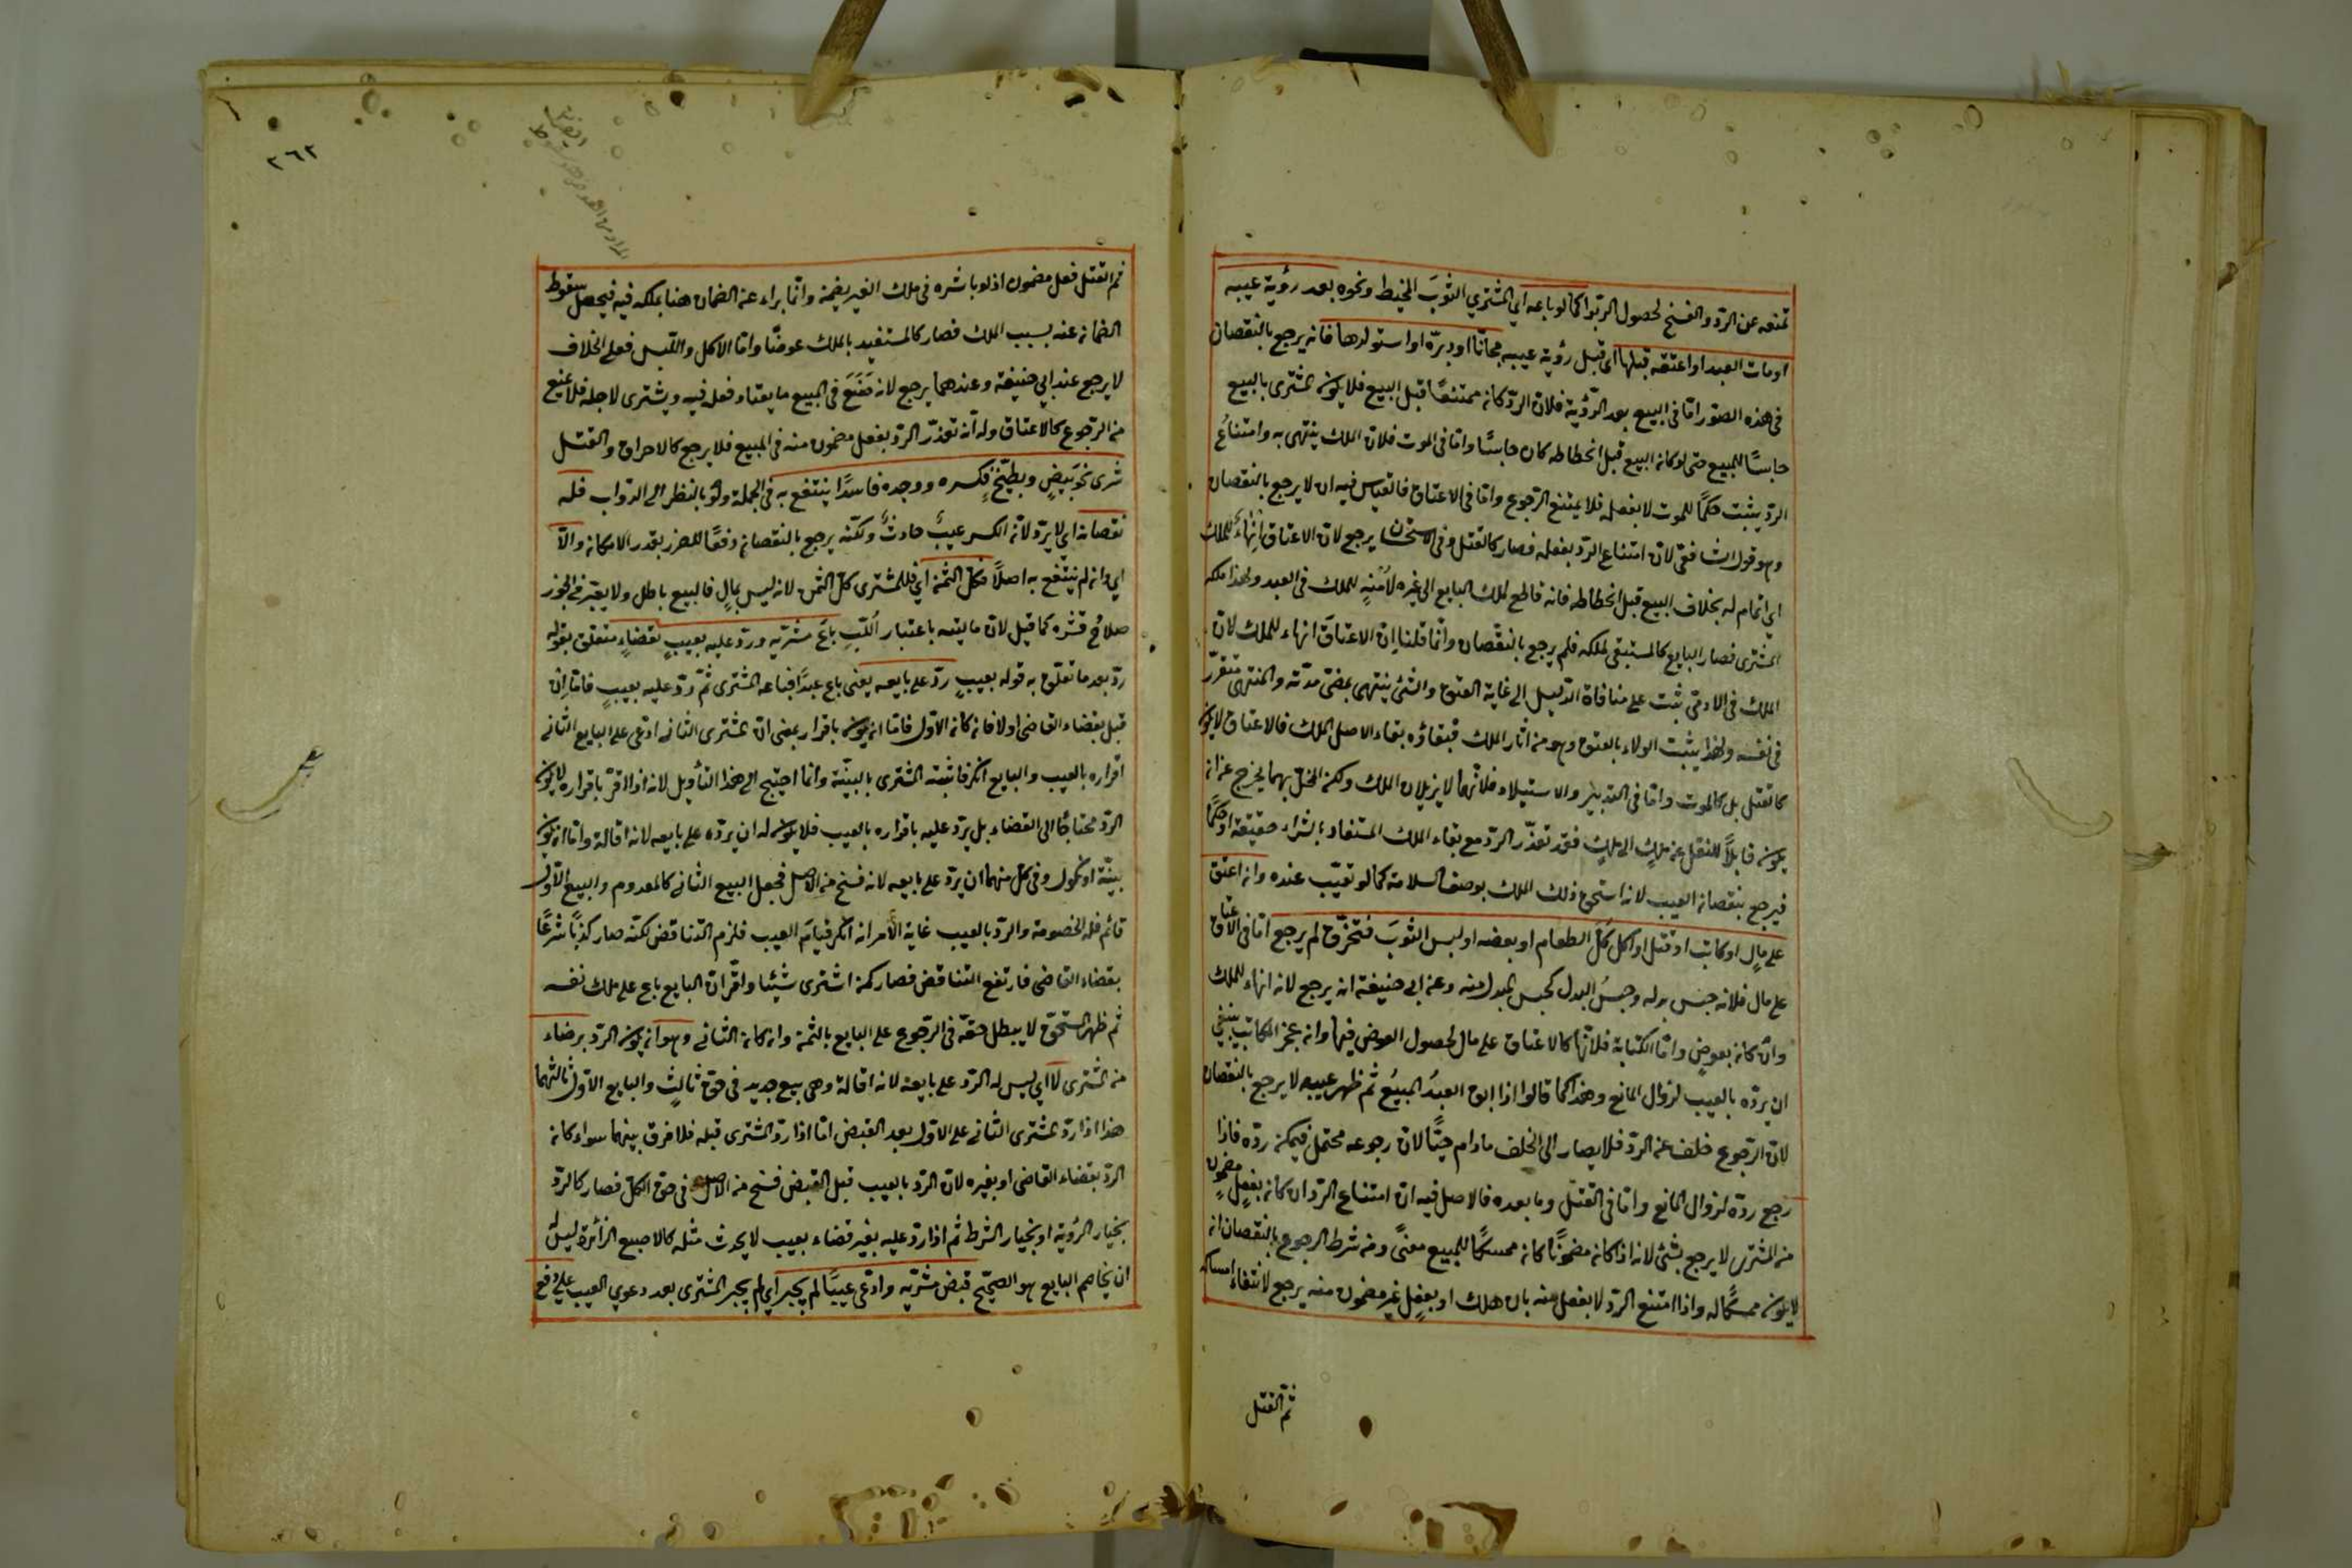 تمنعه عن الردّ والفسخ لحصول الربوا كما لو باعه اي المشتري الثوبَ المخيط ونحوه بعد رؤية عيبه
او مات العبد او اعتقه قبلها اى قبل رؤية عيبه مجاناً او دبرّه او استولدها فانه يرجع بالنقصان
فى هذه الصور امّا فى البيع بعد الرؤية فلان الردّ كان ممتنعًا قبل البيع فلا يكون المشترى بالبيع
حابسًا للمبيع حتى لو كان البيع قبل الخطاطه كان حابسًا وامّا فى الموت فلان الملك ينتهى به وامتناعُ
الردّ يثبت حكمًا للموت لا بفعله فلا يمتنع الرجوع وامّا فى الاعتاق فالقياس فيه ان لا يرجع بالنقصان
وهو قول الشافعى لان امتناع الردّ بفعله فصار كالقتل وفى الاستحسان يرجع لان الاعتاق انهاءٌ للملك
اى اتمام له بخلاف البيع قبل الخطاطه فانه قاطع لملك البايع الى غيره لا منهٍ للملك فى العبد ولهذا ملكه
المشترى فصار البايع كالمستبقى لملكه فلم يرجع بالنقصان وانما قلنا انّ الاعتاقَ انهاء للملك لان
الملك فى الادمى ثبت على منافاة الدليل الى غاية العتق والشئ ينتهى بمضىّ مدّته والمنتهى متقرّر
فى نفسه ولهذا يثبت الولاء بالعتق وهو من اثار الملك فبقاؤه بقاء لاصل الملك فالاعتاق لا يكون
كالقتل بل كالموت وامّا فى التدبير والاستيلاد فلانّهما لا يزيلان الملك ولكن المحلّ بهما يخرج عن ان
يكون قابلاً للنقل من ملكٍ الى ملكٍ فقد تعذّر الردّ مع بقاء الملك المستفاد بالشراء حقيقة او حكمًا
فيرجع بنقصان العيب لانه استحق ذلك الملك بوصف السلامة كما لو تعيّب عنده وان اعتق
على مالٍ او كاتب او قتل او اكل كلَّ الطعام او بعضه او لبس الثوبَ فتخرّق لم يرجع امّا فى الاعتاق
على مال فلانه حبس بدله وحبسُ البدل كحبس المبدل منه وعن ابى حنيفة انه يرجع لانه انهاء للملك
وان كان بعوضٍ وامّا الكتابة فلانّها كالاعتاق على مال لحصول العوض فيها وان عجز المكاتب ينبغى
ان يردّه بالعيب لزوال المانع وهذا كما قالوا اذا ابق العبدُ المبيعُ ثم ظهر عيبه لا يرجع بالنقصان
لانّ الرجوع خلف عن الردّ فلا يصار الى الخلف ما دام حيًّا لان رجوعه محتمل فيمكن ردّه فاذا
رجع ردّه لزوال المانع وامّا فى القتل وما بعده فالاصل فيه انّ امتناع الردّ ان كان بفعلٍ مضمونٍ
من المشترى لا يرجع بشئ لانه اذا كان مضمونًا كان ممسكًا للمبيع معنىً ومن شرط الرجوع بالنقصان ان
لا يكون ممسكًا له واذا امتنع الردّ لا بفعل منه بان هلك او بفعلٍ غير مضمون منه يرجع لانتفاء امساكه
ثم القتل
٢٦٢
ثم القتل فعل مضمون اذ لو باشره فى ملك الغير يضمن وانما براء عن الضمان هنا بملكه فيه فيجعل سقوط
الضمان عنه بسبب الملك فصار كالمستفيد بالملك عوضًا وامّا الاكل واللبس فعلى الخلاف
لا يرجع عند ابى حنيفة وعندهما يرجع لانه صَنَعَ فى المبيع ما يعتاد فعله فيه ويشترى لاجله فلا يمنع
من الرجوع كالاعتاق وله انّه تعذّر الردّ بفعل مضمون منه فى المبيع فلا يرجع كالاحراق والقتل
شرى نحو بَيضٍ وبطّيخٍ فكسره ووجده فاسدًا ينتفع به فى الجملة ولو بالنظر الى الدوّاب فله
نقصانه اى لا يردّ لانّ الكسر عيبٌ حادثٌ ولكنّه يرجع بالنقصان دفعًا للضرر بقدر الامكان والاّ
اى وان لم ينتفع به اصلاً فكلّ الثمن اى فللمشترى كلّ الثمن لانه ليس بمالٍ فالبيع باطل ولا يعتبر فى الجوز
صلاحُ قشره كما قيل لان ماليته باعتبار اللُّبِّ باعَ مشريّه وردّ عليه بعيبٍ بقضاءٍ متعلق بقوله
ردّ بعد ما تعلّق به قوله بعيبٍ ردّ على بايعه يعنى باع عبدًا فباعه المشترى ثمّ ردّ عليه بعيبٍ فامّا ان
قبل بقضاء القاضى او لا فان كان الاوّل فامّا ان يكون باقرار بمعنى انّ المشترى الثانى ادّعى على البايع الثانى
اقراره بالعيب والبايع انكر فاثبته المشترى بالبيّنة وانما احتيج الى هذا التأويل لانه اذا اقرّ باقراره لا يكون
الردّ محتاجًا الى القضاء بل يردّ عليه باقراره بالعيب فلا يكون له ان يردّه على بايعه لانه اقالة وامّا ان يكون
ببيّنة او نكول وفى كل منهما ان يردّ على بايعه لانه فسخ من الاصل فجعل البيع الثانى كالمعدوم والبيع الاوّل
قائم فله الخصومة والردّ بالعيب غاية الأمر انه انكر قيام العيب فلزم التناقض لكنّه صار كذباً شرعًا
بقضاء القاضى فارتفع التناقض فصار كمن اشترى شيئا واقرّ انّ البايع باع على ملك نفسه
ثم ظهر المستحقّ لا يبطل حقّه فى الرجوع على البايع بالثمن وان كان الثانى وهو ان يكون الردّ برضاء
من المشترى لا اى ليس له الردّ على بايعه لانه اقالة وهى بيع جديد فى حق ثالثٍ والبايع الاوّل ثالثهما
هذا اذا ردّ المشترى الثانى على الاوّل بعد القبض امّا اذا ردّ المشترى قبله فلا فرق بينهما سواء كان
الردّ بقضاء القاضى او بغيره لان الردّ بالعيب قبل القبض فسخ من الاصل فى حق الكلّ فصار كالردّ
بخيار الرؤية او بخيار الشرط ثم اذا ردّ عليه بغير قضاء بعيب لا يحدث مثله كالاصبع الزائدة ليس له
ان يخاصم البايع هو الصحيح قبض مشريّه وادّعى عيبًا لم يجبر اى لم يجبر المشترى بعد دعوى العيب على دفع